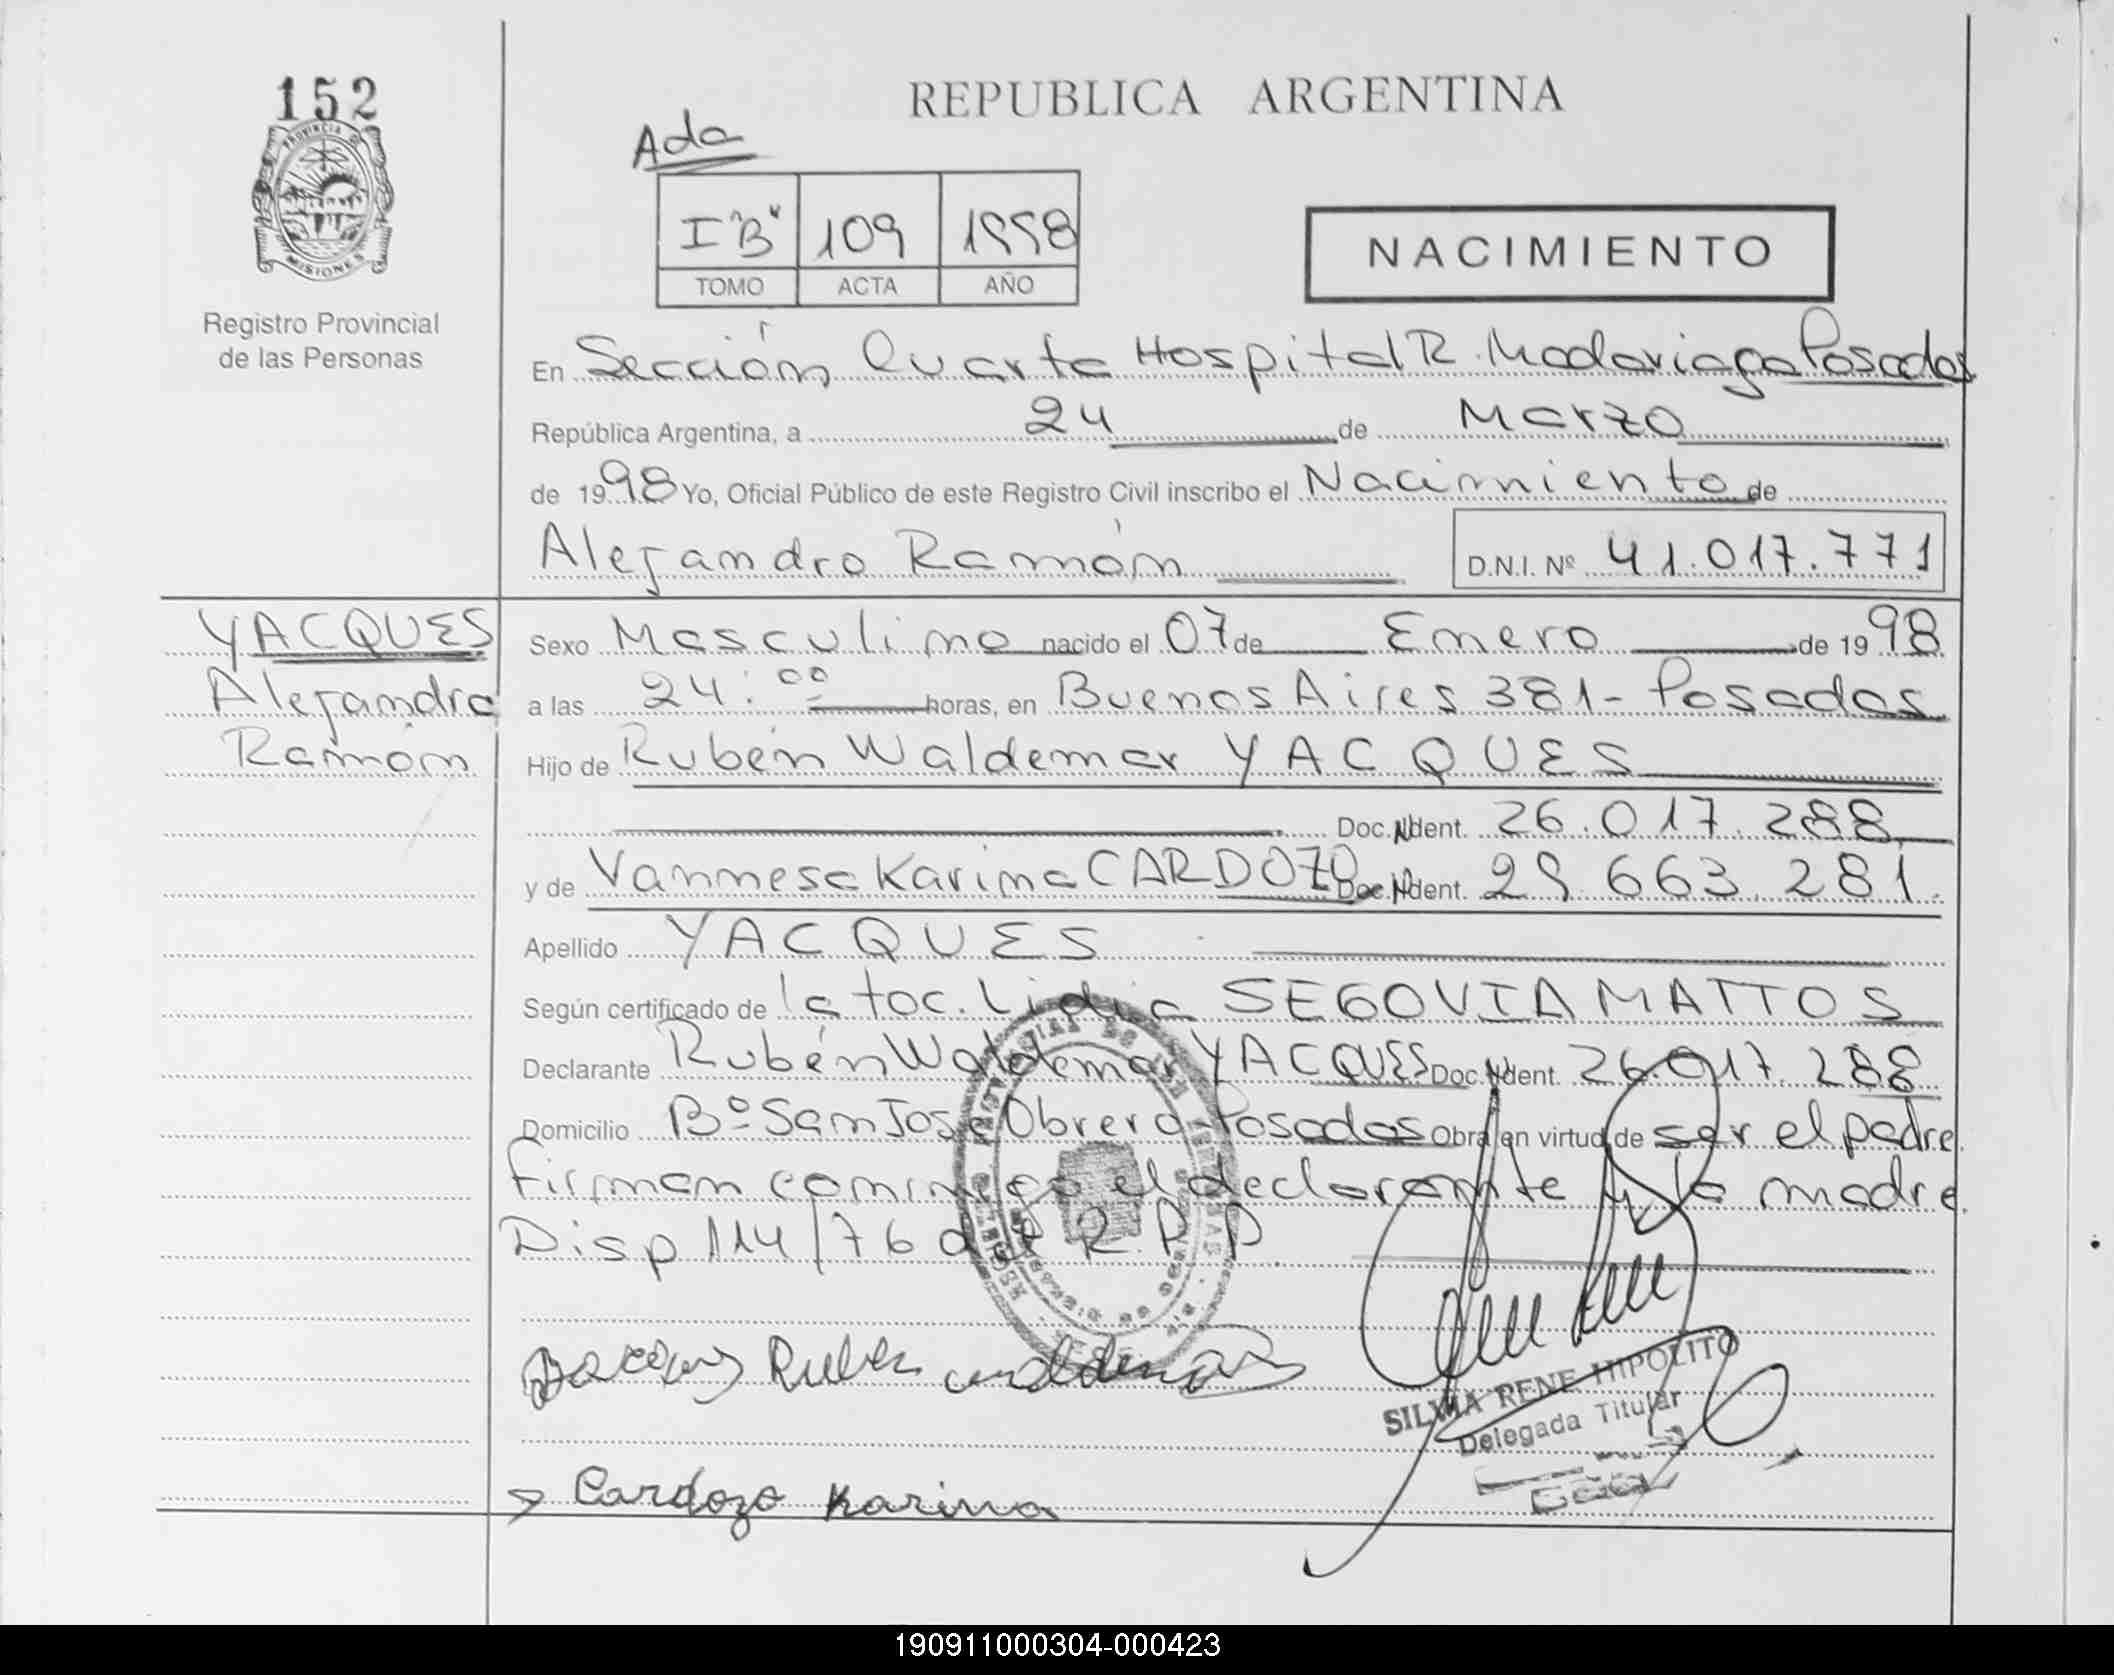 152
PROVINCIA DE
MISIONES
Registro Provincial
de las Personas
REPUBLICA ARGENTINA
Ada
I "B" 109 1998
TOMO ACTA AÑO
NACIMIENTO
En Sección Cuarta Hospital R. Madariaga Posadas
República Argentina, a 24 de Marzo
de 1998 Yo, Oficial Público de este Registro Civil inscribo el Nacimiento de
Alejandro Ramón D.N.I. Nº 41.017.771
YACQUES
Alejandro
Ramón
Sexo Masculino nacido el 07 de Enero de 1998
a las 24:00 horas, en Buenos Aires 381 - Posadas
Hijo de Rubén Waldemar YACQUES
Doc. Ident. 26.017.288
y de Vannesa Karina CARDOZO Doc. Ident. 29.663.281.
Apellido YACQUES
Según certificado de la toc. Lidia SEGOVIA MATTOS
Declarante Rubén Waldemar YACQUES Doc. Ident. 26.017.288
Domicilio Bº San José Obrero Posadas Obra en virtud de ser el padre.
Firman conmigo el declarante y la madre.
Disp 114/76 del R.P.P.
Ruben
SILVIA RENE HIPOLITO
Delegada Titular
Cardozo Karina
190911000304-000423